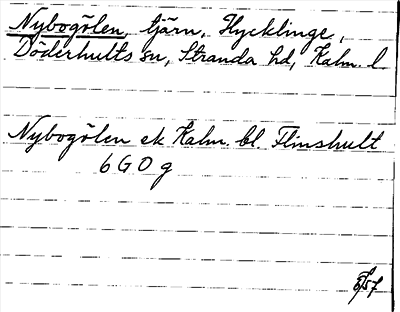 Nybogölen, tjärn, Hycklinge,
Döderhults sn, Stranda hd, Kalm. l.
Nybogölen ek Kalm. bl. Flinshult
6 G 0 g